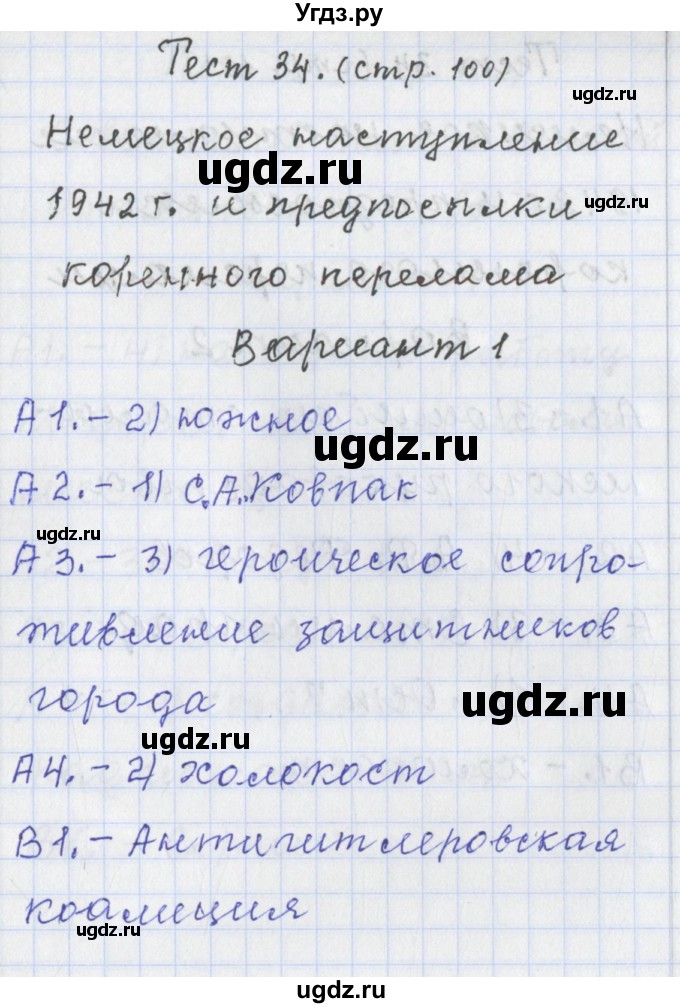 Угдз.ру
Тест 34. (стр. 100)
ugdz.ru
Немецкое наступление
ugdz.ru
1942 г. и предпосылки
ugdz.ru
коренного перелама
Вариант 1
А1. - 2) южное
ugdz.ru
А2. - 1) С.А. Ковпак
ugdz.ru
А3. - 3) героическое сопро-
тивление защитников
города
ugdz.ru
ugdz.ru
А4. - 2) холокост
В1. - Антигитлеровская
коалиция
ugdz.ru
Угдз.ру